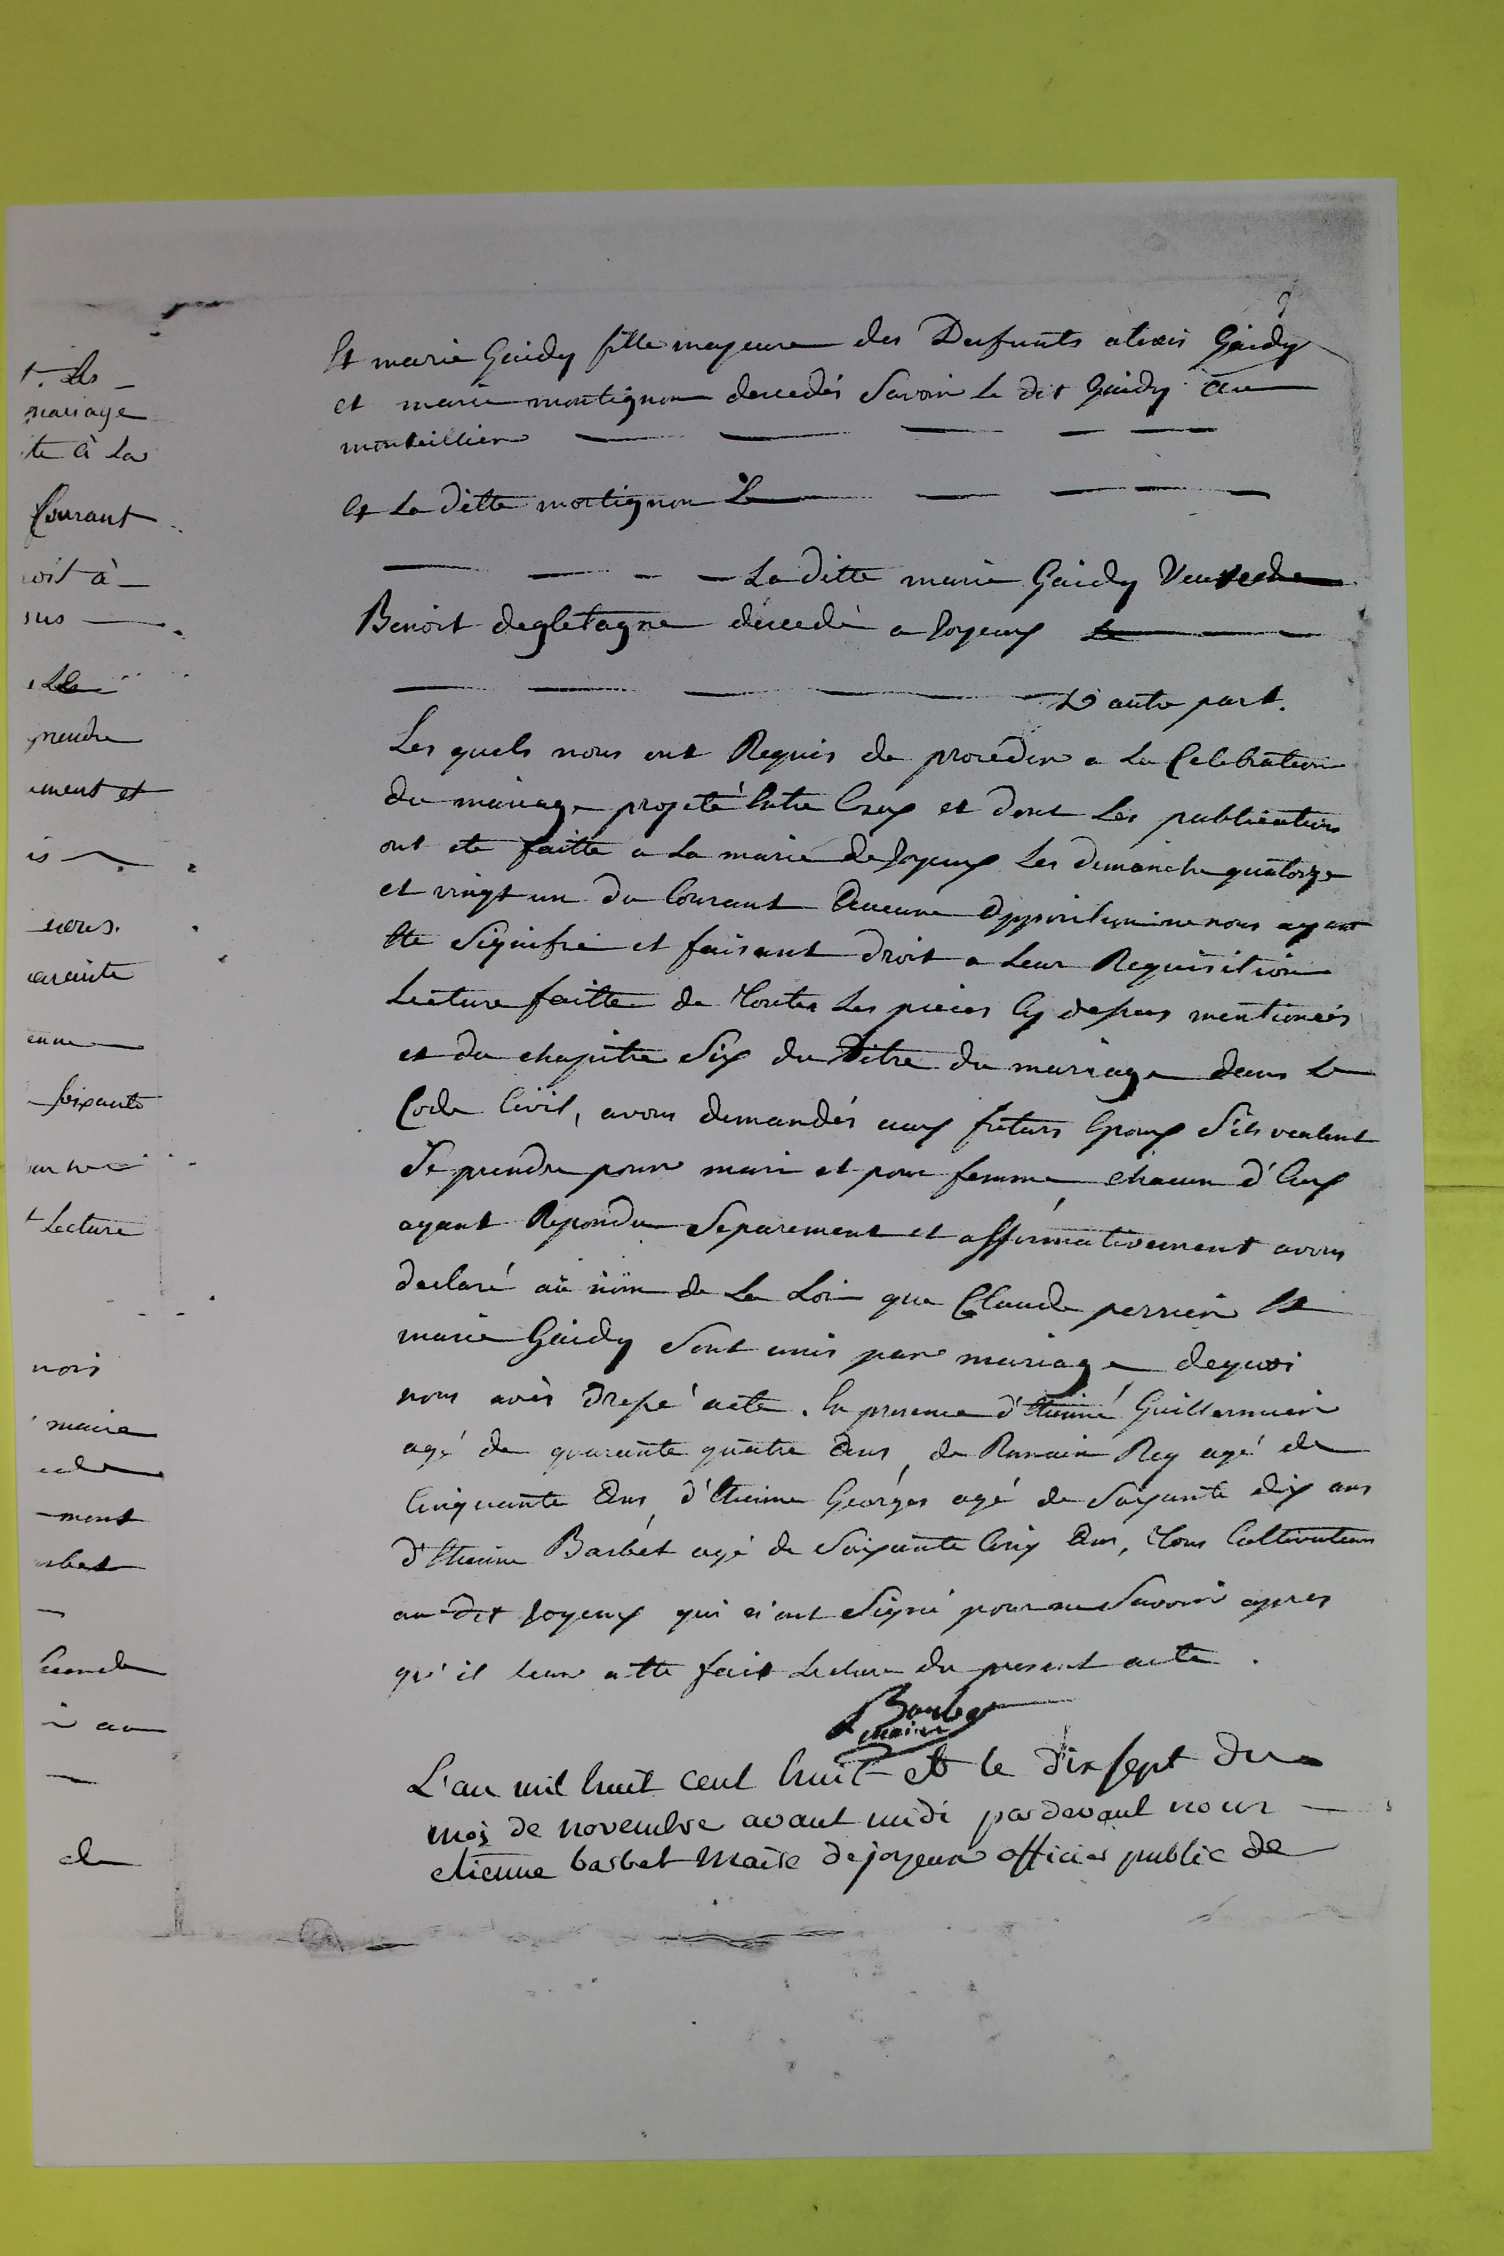 t. les
mariage
te à La
Courant
soit à
sus
prendre
ement et
is
nous.
arante
enne
soixante
t Lecture
nois
maire
ment
arbet
au
de
Et marie Gaidy fille majeure des Deffunts alexis Gaidy
et marie montignon decedés Savoir Le dit Gaidy au
monteillier
Et La ditte montignon Le
La ditte marie Gaidy Veuve de
Benoit degletagne decedé a Joyeux Le
D'autre part.
Les quels nous ont Requis de proceder a La Celebration
du mariage projeté Entre Eux et dont Les publications
ont ete faitte a La marie de Joyeux Les dimanche quatorze
et vingt un du Courant Aucune Opposition ne nous ayant
Ete Signifié et faisant droit a Leur Requisition
Lecture faitte de Toutes Les pieces Cy dessus mentionées
et du chapitre Six du Titre du mariage dans Le
Code Civil, avons demandés aux futurs Epoux S'ils veulent
Se prendre pour mari et pour femme chacun d'Eux
ayant Repondu Separement et affirmativement avons
declaré au nom de La Loi que Claude perrier Et
marie Gaidy Sont unis par mariage dequoi
nous avons dressé acte. En presence d'Etienne Guillermin
agé de quarante quatre Ans, de Romain Rey agé de
Cinquante Ans d'Etienne Georges agé de Soixante dix ans
d'Etienne Barbet agé de Soixante Cinq Ans, Tous Cultivateurs
au dit Joyeux qui n'ont Signé pour ne Savoir apres
qu'il Leur a ette fait Lecture du present acte.
Barbet
maire
L'an mil huit cent huit et le dix sept du
mois de novembre avant midi pardevant nous
etienne barbet Maire de joyeux officier public de